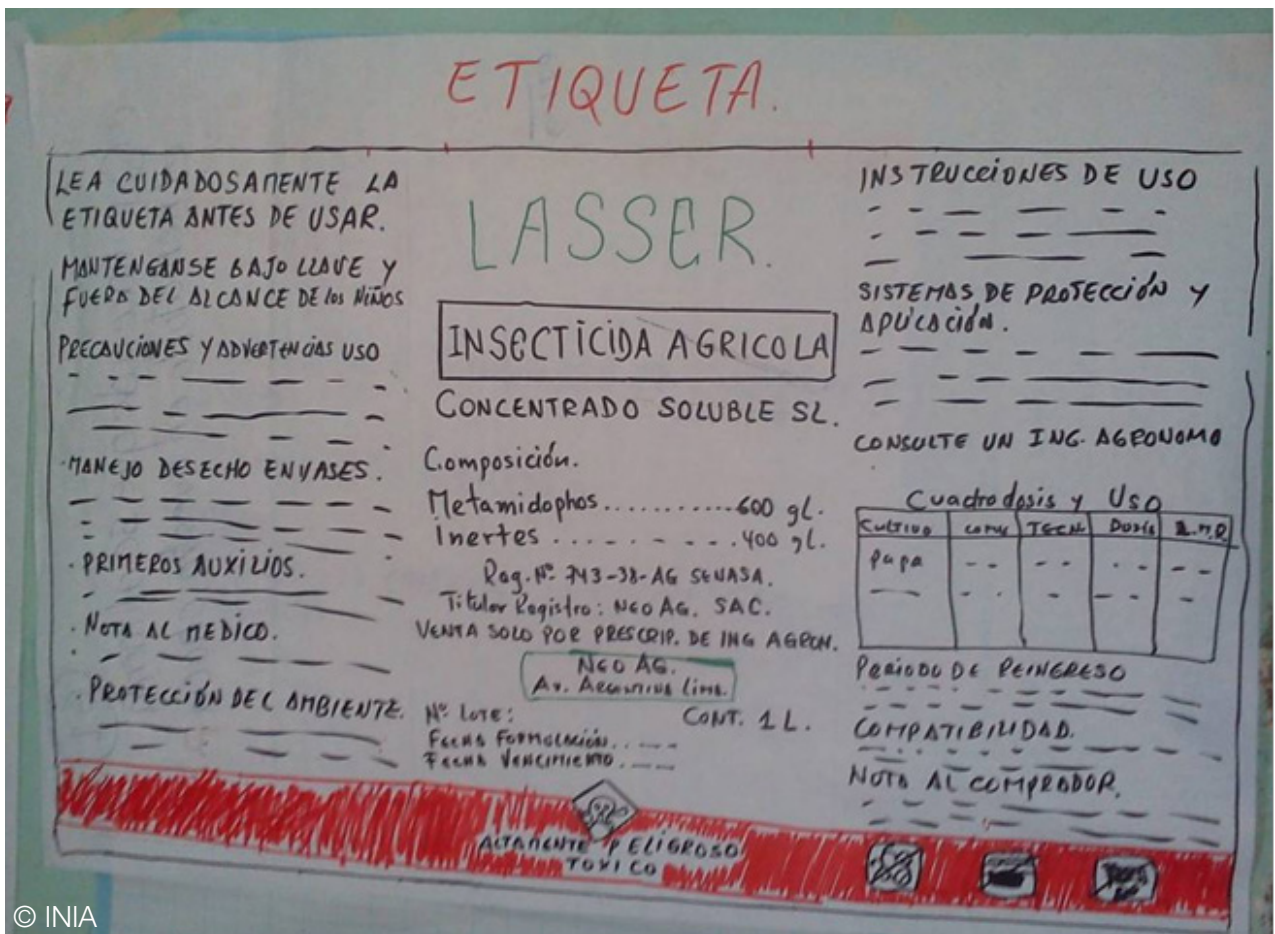 ETIQUETA.
LEA CUIDADOSAMENTE LA
ETIQUETA ANTES DE USAR.
MANTENGANSE BAJO LLAVE Y
FUERA DEL ALCANCE DE los NIÑOS
PRECAUCIONES Y ADVERTENCIAS USO
·MANEJO DESECHO ENVASES.
·PRIMEROS AUXILIOS.
·NOTA AL MEDICO.
·PROTECCIÓN DEL AMBIENTE.
LASSER.
INSECTICIDA AGRICOLA
CONCENTRADO SOLUBLE SL.
Composición.
Metamidophos...........600 gL.
Inertes..........400 gL.
Rag. Nº 743-38-AG SENASA.
Titular Registro: NEO AG. SAC.
VENTA SOLO POR PRESCRIP. DE ING AGRON.
NEO AG.
Av. ARGENTINA Lima.
Nº LOTE: CONT. 1 L.
FECHA FORMULACIÓN.
FECHA VENCIMIENTO.
INSTRUCCIONES DE USO
SISTEMAS DE PROTECCIÓN Y
APLICACIÓN.
CONSULTE UN ING. AGRONOMO
Cuadro dosis y USO
CULTIVO TECN DOSIS
Papa
PERIODO DE REINGRESO
COMPATIBILIDAD.
NOTA AL COMPRADOR.
ALTAMENTE PELIGROSO
TOXICO
© INIA